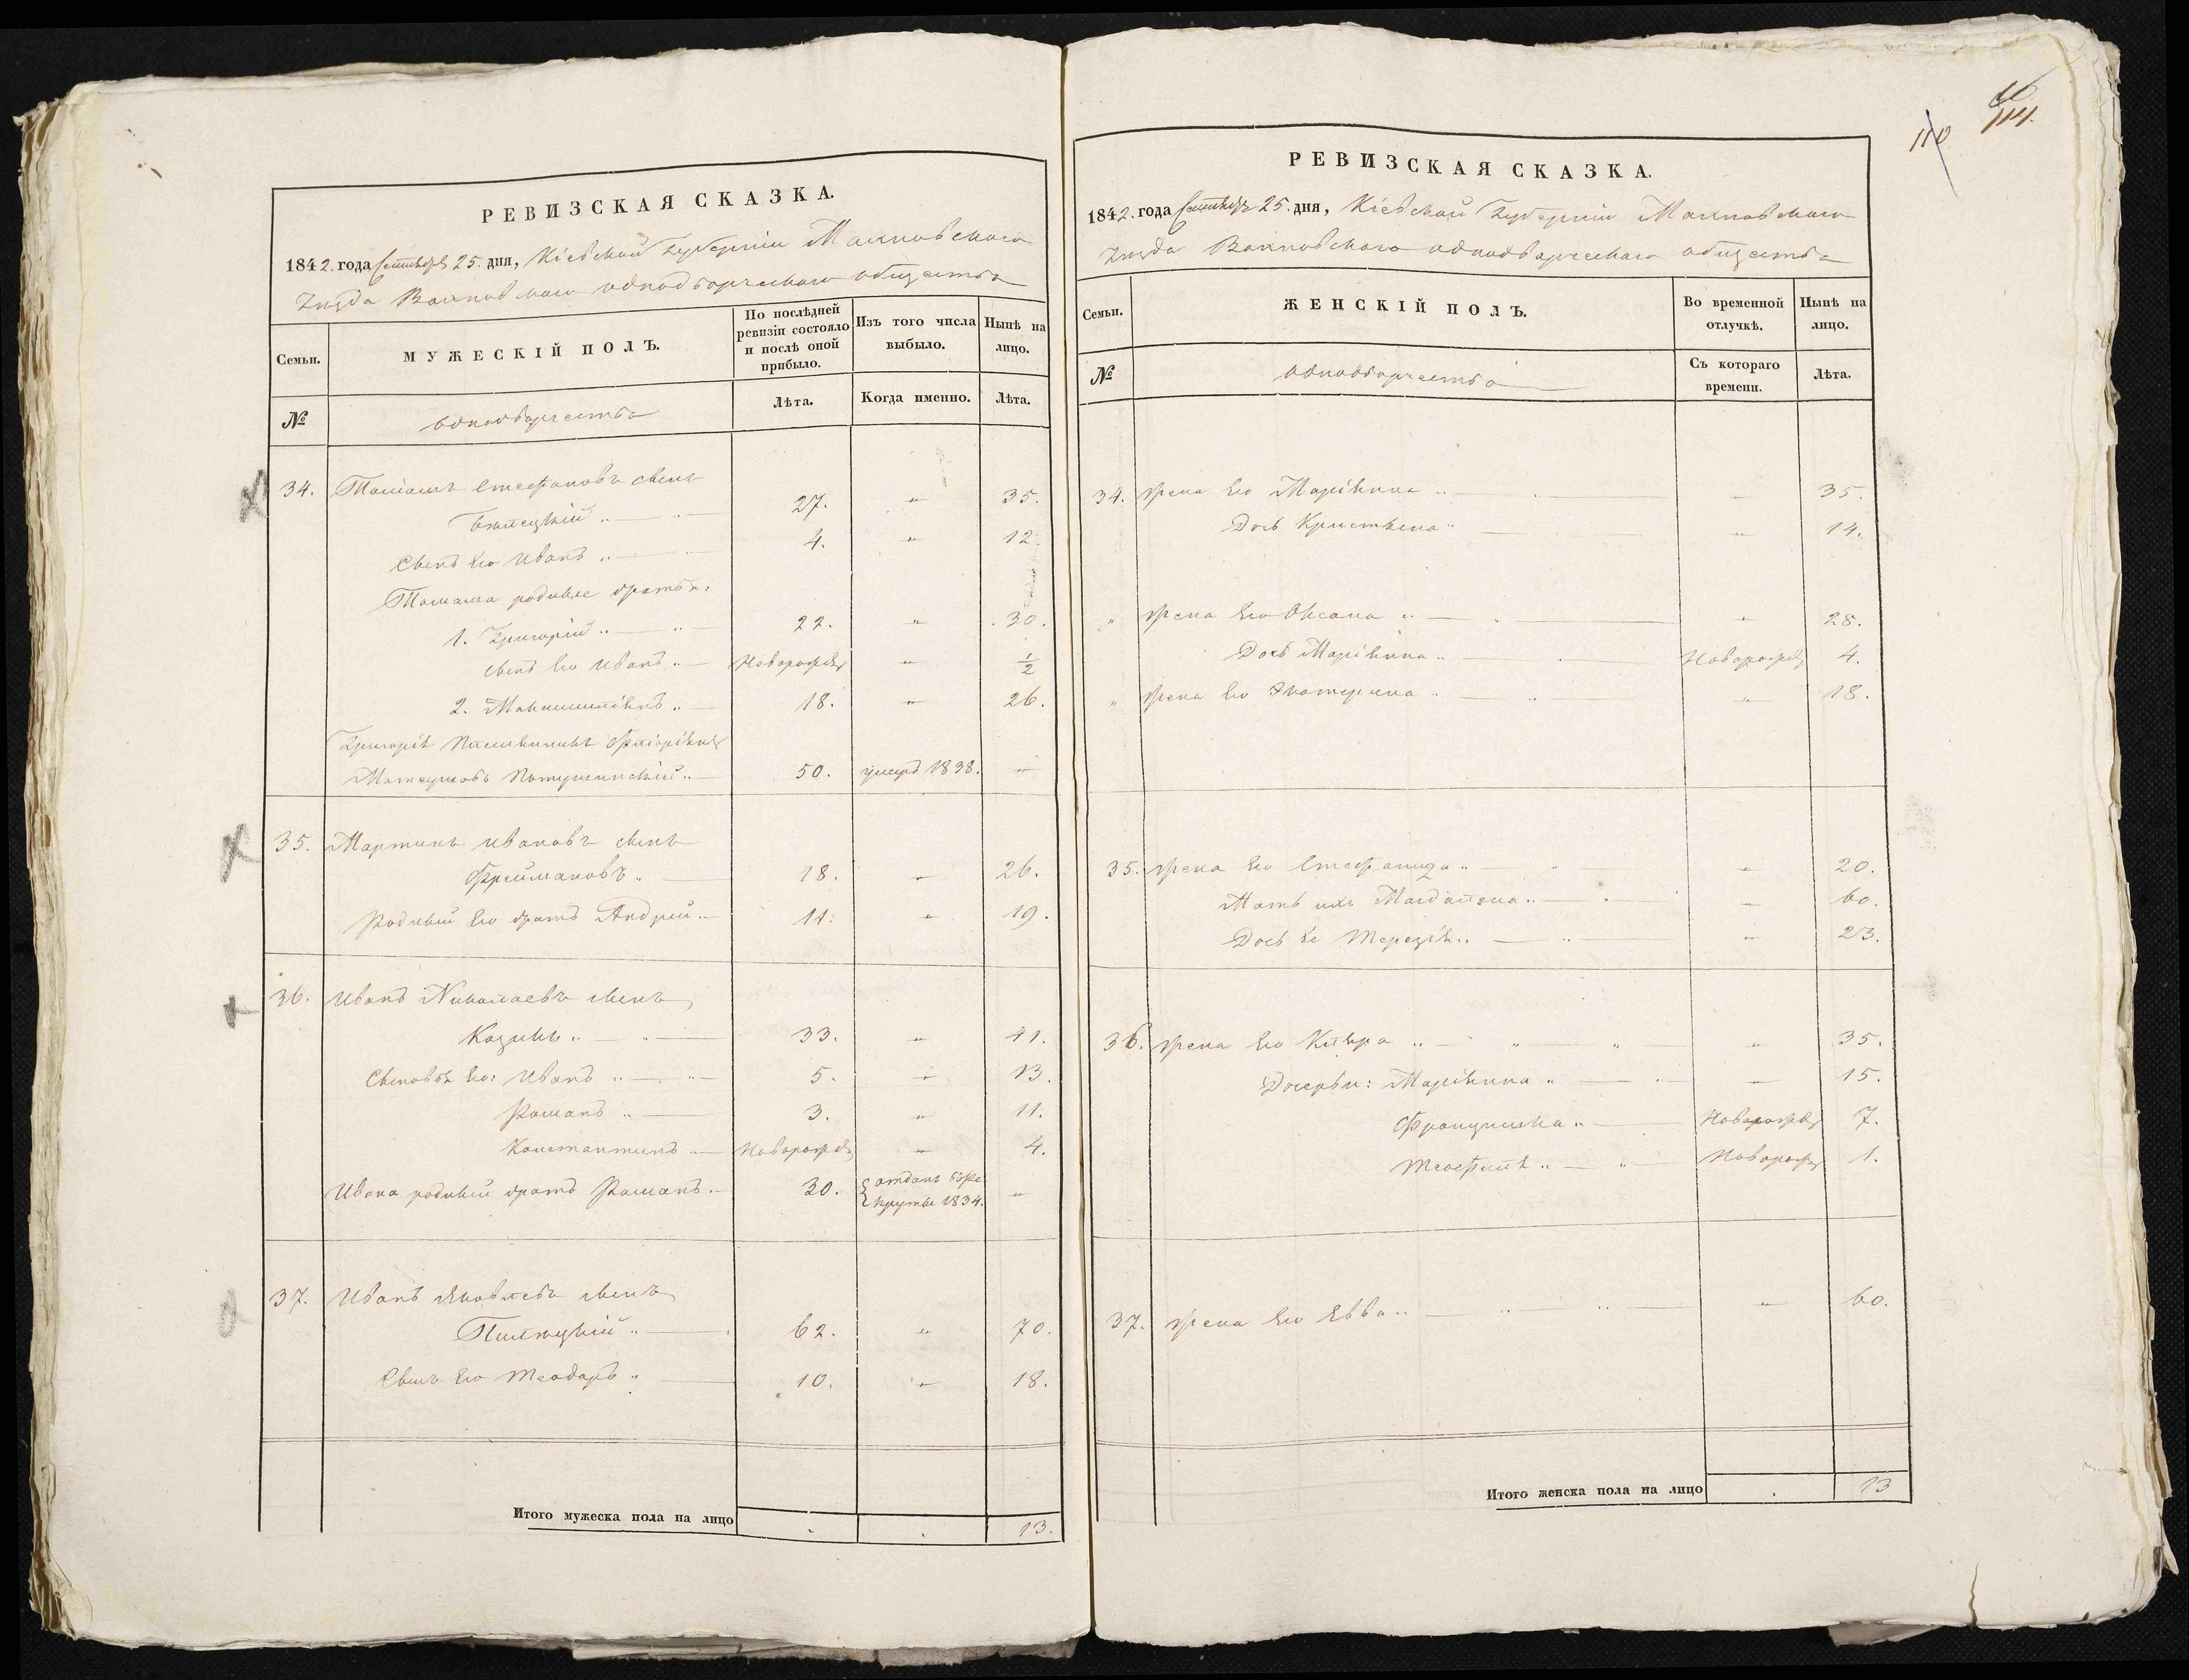 РЕВИЗСКАЯ СКАЗКА.
1842. года Сентября 25. дня, Кіевской Губерніи Махновскаго
Уезда Вахновскаго однодворческаго общества
Семьи.
МУЖЕСКІЙ ПОЛЪ.
По послѣдней ревизіи состояло и послѣ оной прибыло.
Изъ того числа выбыло.
Нынѣ на лицо.
№
однодворчества
Лѣта.
Когда именно.
Лѣта.
34. Томашъ Стефановъ сынъ
27. " 35.
Сынъ его Иванъ .. 4. " 12.
Томаша родные братья:
1. Григорій .. 22. " 30.
сынъ его Иванъ .. Новорожд " 1/2
2. Максимиліянъ .. 18. " 26.
Григорія
50. умеръ 1838. "
35. Мартинъ Ивановъ сынъ
Фреймановъ .. 18. " 26.
Родный его братъ Андрей .. 11. " 19.
36. Иванъ Николаевъ сынъ
Козинъ .. 33. " 41.
Сыновья его: Иванъ .. 5. " 13.
Романъ .. 3. " 11.
Константинъ .. Новорожд " 4.
Ивана родный братъ Романъ .. 30. отданъ въ ре
круты 1834. "
37. Иванъ Яковлевъ сынъ
62. " 70.
Сынъ его Теодоръ .. 10. " 18.
Итого мужеска пола на лицо 13.
110
114.
РЕВИЗСКАЯ СКАЗКА.
1842. года Сентября 25. дня, Кіевской Губерніи Махновскаго
Уезда Вахновскаго однодворческаго общества
Семьи.
ЖЕНСКІЙ ПОЛЪ.
Во временной отлучкѣ.
Нынѣ на лицо.
№
однодворчества
Съ котораго времени.
Лѣта.
34. Жена его Маріянна .. " 35.
Дочь Кристына .. " 14.
" Жена его Оксана .. " 28.
Дочь Маріянна .. Новорожд 4.
" Жена его Екатерина .. " 18.
35. Жена его Стефанида .. " 20.
Мать ихъ Магдалена .. " 60.
Дочь ее Терезія .. " 23.
36. Жена его Кляра .. " 35.
Дочерьи: Маріянна .. " 15.
Францишка .. Новорожд 7.
Теофиля .. Новорожд 1.
37. Жена его Евва .. " 60.
Итого женска пола на лицо 13